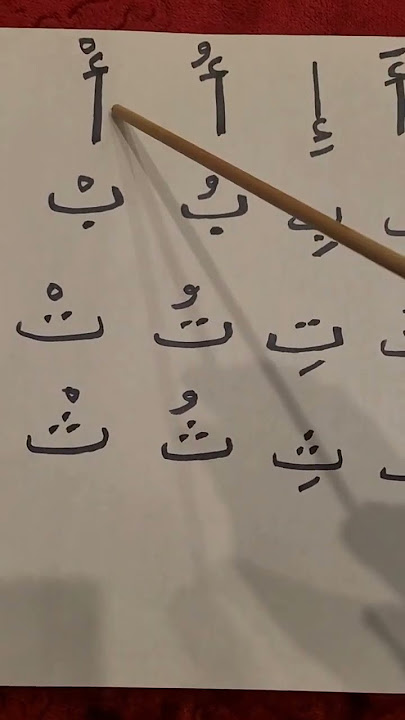 أَ إِ أُ أْ
بِ بُ بْ
تِ تُ تْ
ثِ ثُ ثْ